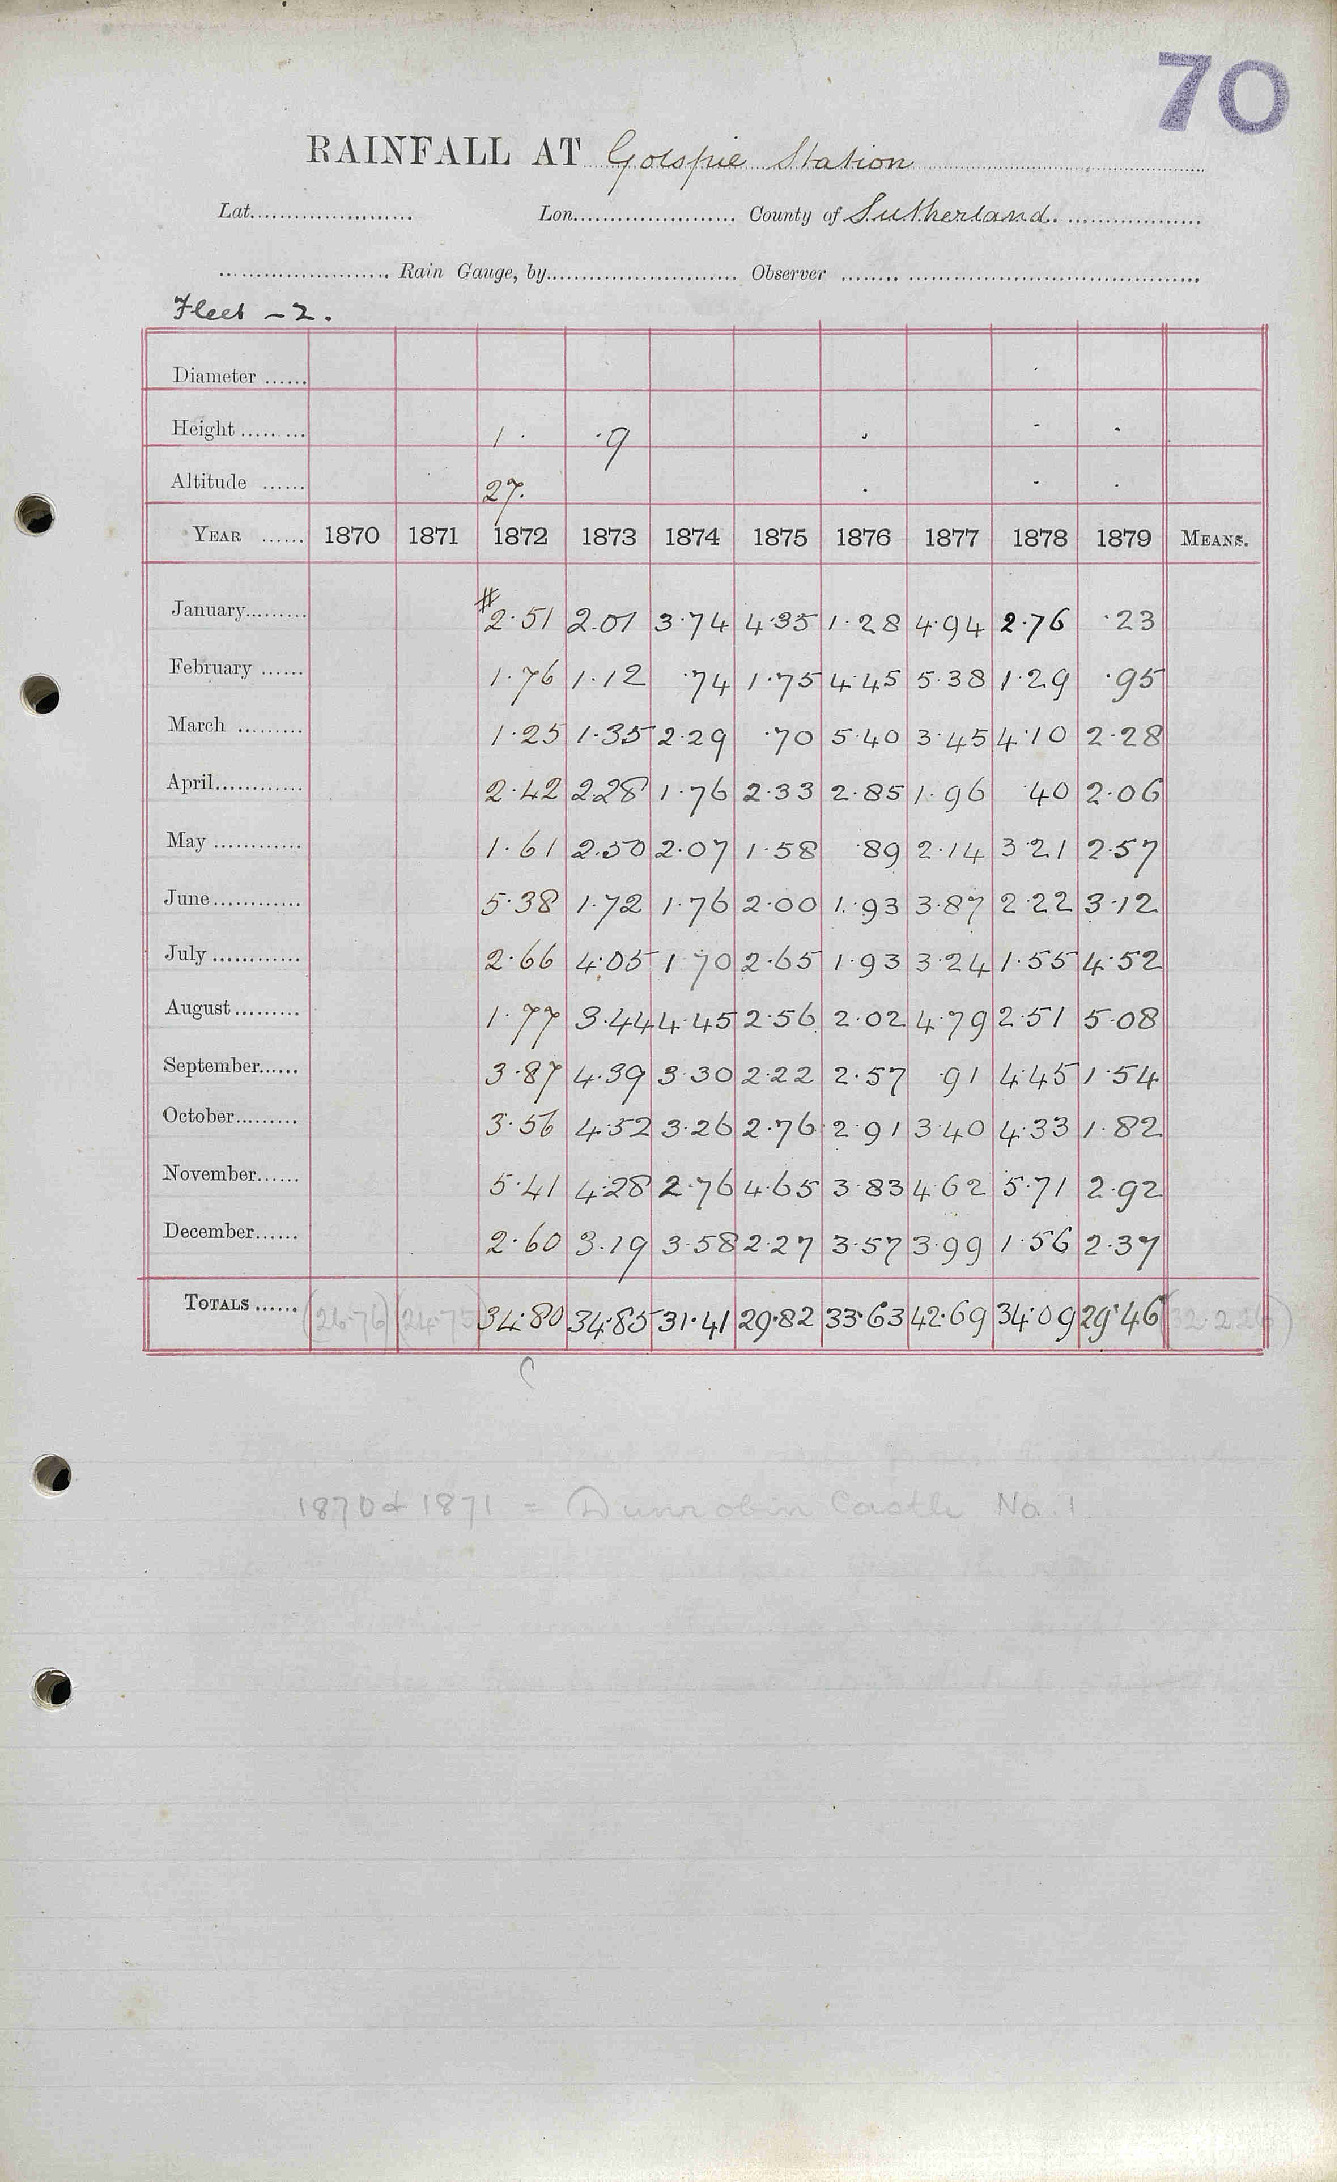 70
RAINFALL AT Golspie Station
Lat. Lon. County of Sutherland.
Rain Gauge, by Observer
Fleet - 2.
Diameter
Height 1. ·9
Altitude 27.
YEAR 1870 1871 1872 1873 1874 1875 1876 1877 1878 1879 MEANS.
January #2·51 2.01 3·74 4·35 1·28 4·94 2·76 ·23
February 1·76 1·12 ·74 1·75 4·45 5·38 1·29 ·95
March 1·25 1·35 2·29 ·70 5·40 3·45 4·10 2·28
April 2·42 2.28 1·76 2·33 2·85 1·96 ·40 2·06
May 1·61 2.50 2·07 1·58 ·89 2·14 3·21 2·57
June 5·38 1·72 1·76 2·00 1·93 3·87 2·22 3·12
July 2·66 4·05 1·70 2·65 1·93 3·24 1·55 4·52
August 1·77 3·44 4·45 2·56 2·02 4·79 2·51 5·08
September 3·87 4·39 3·30 2·22 2·57 ·91 4·45 1·54
October 3·56 4·52 3·26 2·76 2·91 3·40 4·33 1·82
November 5·41 4·28 2·76 4·65 3·83 4·62 5·71 2·92
December 2·60 3·19 3·58 2·27 3·57 3·99 1·56 2·37
TOTALS (26·76) (24·75) 34·80 34·85 31·41 29·82 33·63 42·69 34·09 29·46 (32·226)
1870 & 1871 = Dunrobin Castle No. 1